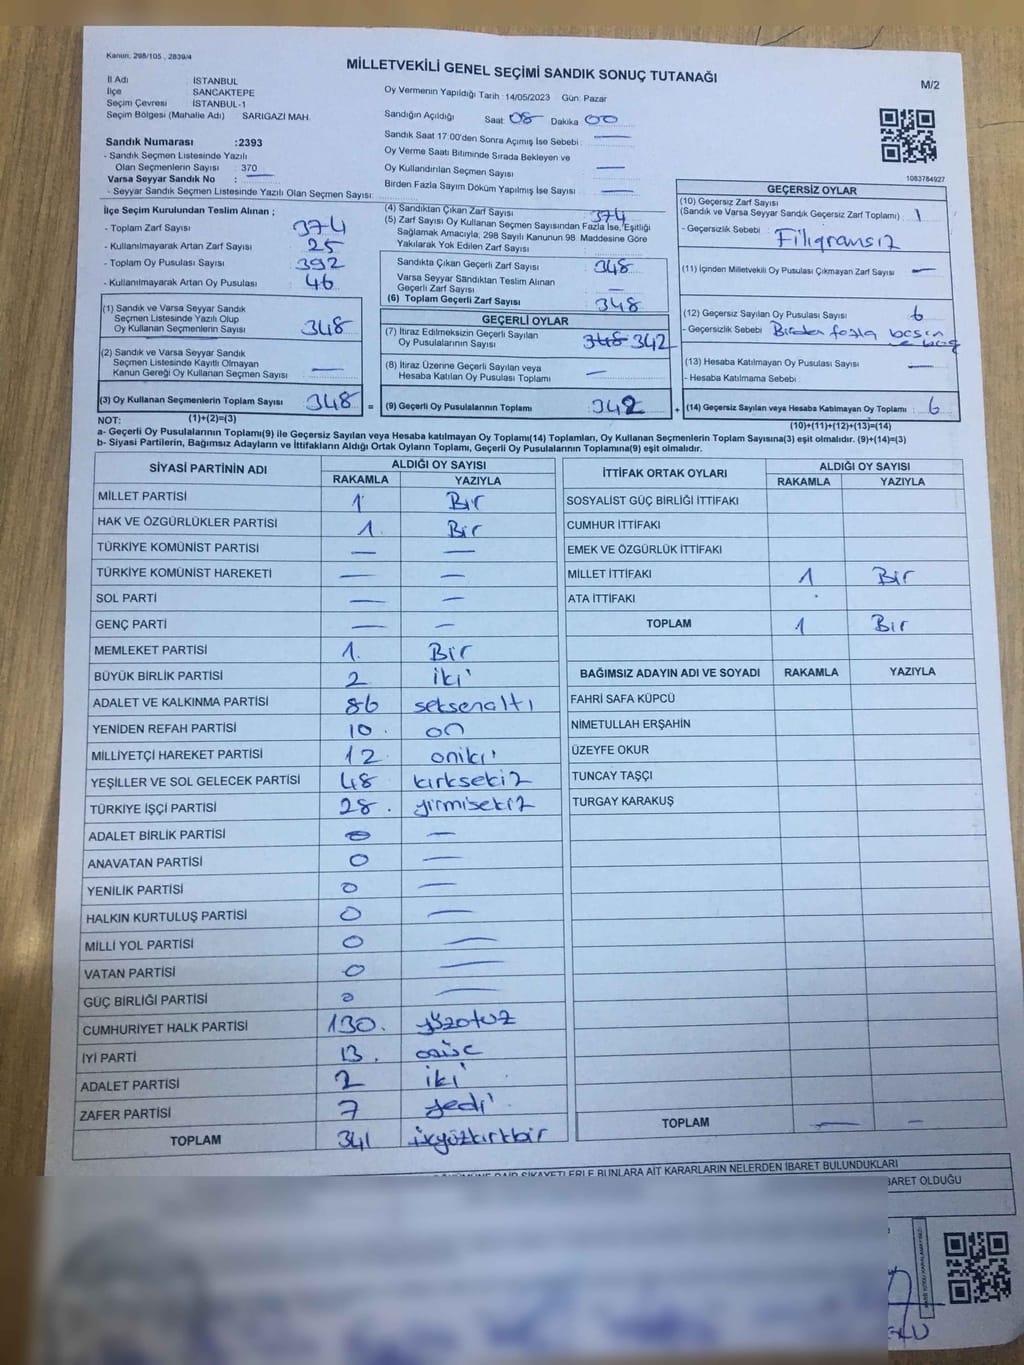 Kanun: 298/105 , 2839/4
MİLLETVEKİLİ GENEL SEÇİMİ SANDIK SONUÇ TUTANAĞI
M/2
İl Adı İSTANBUL
İlçe SANCAKTEPE
Seçim Çevresi İSTANBUL-1
Seçim Bölgesi (Mahalle Adı) SARIGAZİ MAH.
Sandık Numarası :2393
- Sandık Seçmen Listesinde Yazılı
Olan Seçmenlerin Sayısı : 370
Varsa Seyyar Sandık No : —
- Seyyar Sandık Seçmen Listesinde Yazılı Olan Seçmen Sayısı:
Oy Vermenin Yapıldığı Tarih :14/05/2023 Gün: Pazar
Sandığın Açıldığı Saat 08 Dakika 00
Sandık Saat 17:00'den Sonra Açılmış İse Sebebi: —
Oy Verme Saati Bitiminde Sırada Bekleyen ve
Oy Kullandırılan Seçmen Sayısı —
Birden Fazla Sayım Döküm Yapılmış İse Sayısı —
1083784927
İlçe Seçim Kurulundan Teslim Alınan ;
- Toplam Zarf Sayısı 374
- Kullanılmayarak Artan Zarf Sayısı 25
- Toplam Oy Pusulası Sayısı 392
- Kullanılmayarak Artan Oy Pusulası 46
(1) Sandık ve Varsa Seyyar Sandık
Seçmen Listesinde Yazılı Olup
Oy Kullanan Seçmenlerin Sayısı 348
(2) Sandık ve Varsa Seyyar Sandık
Seçmen Listesinde Kayıtlı Olmayan
Kanun Gereği Oy Kullanan Seçmen Sayısı —
(3) Oy Kullanan Seçmenlerin Toplam Sayısı 348 =
(1)+(2)=(3)
(4) Sandıktan Çıkan Zarf Sayısı 374
(5) Zarf Sayısı Oy Kullanan Seçmen Sayısından Fazla İse, Eşitliği
Sağlamak Amacıyla, 298 Sayılı Kanunun 98. Maddesine Göre
Yakılarak Yok Edilen Zarf Sayısı
Sandıkta Çıkan Geçerli Zarf Sayısı 348
Varsa Seyyar Sandıktan Teslim Alınan
Geçerli Zarf Sayısı —
(6) Toplam Geçerli Zarf Sayısı 348
GEÇERLİ OYLAR
(7) İtiraz Edilmeksizin Geçerli Sayılan
Oy Pusulalarının Sayısı 348 342
(8) İtiraz Üzerine Geçerli Sayılan veya
Hesaba Katılan Oy Pusulası Toplamı —
(9) Geçerli Oy Pusulalarının Toplamı 342 +
GEÇERSİZ OYLAR
(10) Geçersiz Zarf Sayısı
(Sandık ve Varsa Seyyar Sandık Geçersiz Zarf Toplamı) 1
- Geçersizlik Sebebi Filigransız
(11) İçinden Milletvekili Oy Pusulası Çıkmayan Zarf Sayısı —
(12) Geçersiz Sayılan Oy Pusulası Sayısı 6
- Geçersizlik Sebebi Birden fazla
(13) Hesaba Katılmayan Oy Pusulası Sayısı —
- Hesaba Katılmama Sebebi
(14) Geçersiz Sayılan veya Hesaba Katılmayan Oy Toplamı : 6
(10)+(11)+(12)+(13)=(14)
NOT:
a- Geçerli Oy Pusulasının Toplamı(9) ile Geçersiz Sayılan veya Hesaba katılmayan Oy Toplamı(14) Toplamları, Oy Kullanan Seçmenlerin Toplam Sayısına(3) eşit olmalıdır. (9)+(14)=(3)
b- Siyasi Partilerin, Bağımsız Adayların ve İttifakların Aldığı Ortak Oyların Toplamı, Geçerli Oy Pusulalarının Toplamına(9) eşit olmalıdır.
SİYASİ PARTİNİN ADI ALDIĞI OY SAYISI
RAKAMLA YAZIYLA
MİLLET PARTİSİ 1 Bir
HAK VE ÖZGÜRLÜKLER PARTİSİ 1. Bir
TÜRKİYE KOMÜNİST PARTİSİ — —
TÜRKİYE KOMÜNİST HAREKETİ — —
SOL PARTİ — —
GENÇ PARTİ — —
MEMLEKET PARTİSİ 1. Bir
BÜYÜK BİRLİK PARTİSİ 2 iki
ADALET VE KALKINMA PARTİSİ 86 seksenaltı
YENİDEN REFAH PARTİSİ 10 . on
MİLLİYETÇİ HAREKET PARTİSİ 12 oniki
YEŞİLLER VE SOL GELECEK PARTİSİ 48 kırksekiz
TÜRKİYE İŞÇİ PARTİSİ 28 . yirmisekiz
ADALET BİRLİK PARTİSİ 0 —
ANAVATAN PARTİSİ 0 —
YENİLİK PARTİSİ 0 —
HALKIN KURTULUŞ PARTİSİ 0 —
MİLLİ YOL PARTİSİ 0 —
VATAN PARTİSİ 0 —
GÜÇ BİRLİĞİ PARTİSİ 0 —
CUMHURİYET HALK PARTİSİ 130. yüzotuz
İYİ PARTİ 13 . onüç
ADALET PARTİSİ 2 iki
ZAFER PARTİSİ 7 yedi
TOPLAM 341 üçyüzkırkbir
İTTİFAK ORTAK OYLARI ALDIĞI OY SAYISI
RAKAMLA YAZIYLA
SOSYALİST GÜÇ BİRLİĞİ İTTİFAKI
CUMHUR İTTİFAKI
EMEK VE ÖZGÜRLÜK İTTİFAKI
MİLLET İTTİFAKI 1 Bir
ATA İTTİFAKI
TOPLAM 1 Bir
BAĞIMSIZ ADAYIN ADI VE SOYADI RAKAMLA YAZIYLA
FAHRİ SAFA KÜPCÜ
NİMETULLAH ERŞAHİN
ÜZEYFE OKUR
TUNCAY TAŞÇI
TURGAY KARAKUŞ
TOPLAM — —
ŞİKAYETLERLE BUNLARA AİT KARARLARIN NELERDEN İBARET BULUNDUKLARI
İBARET OLDUĞU